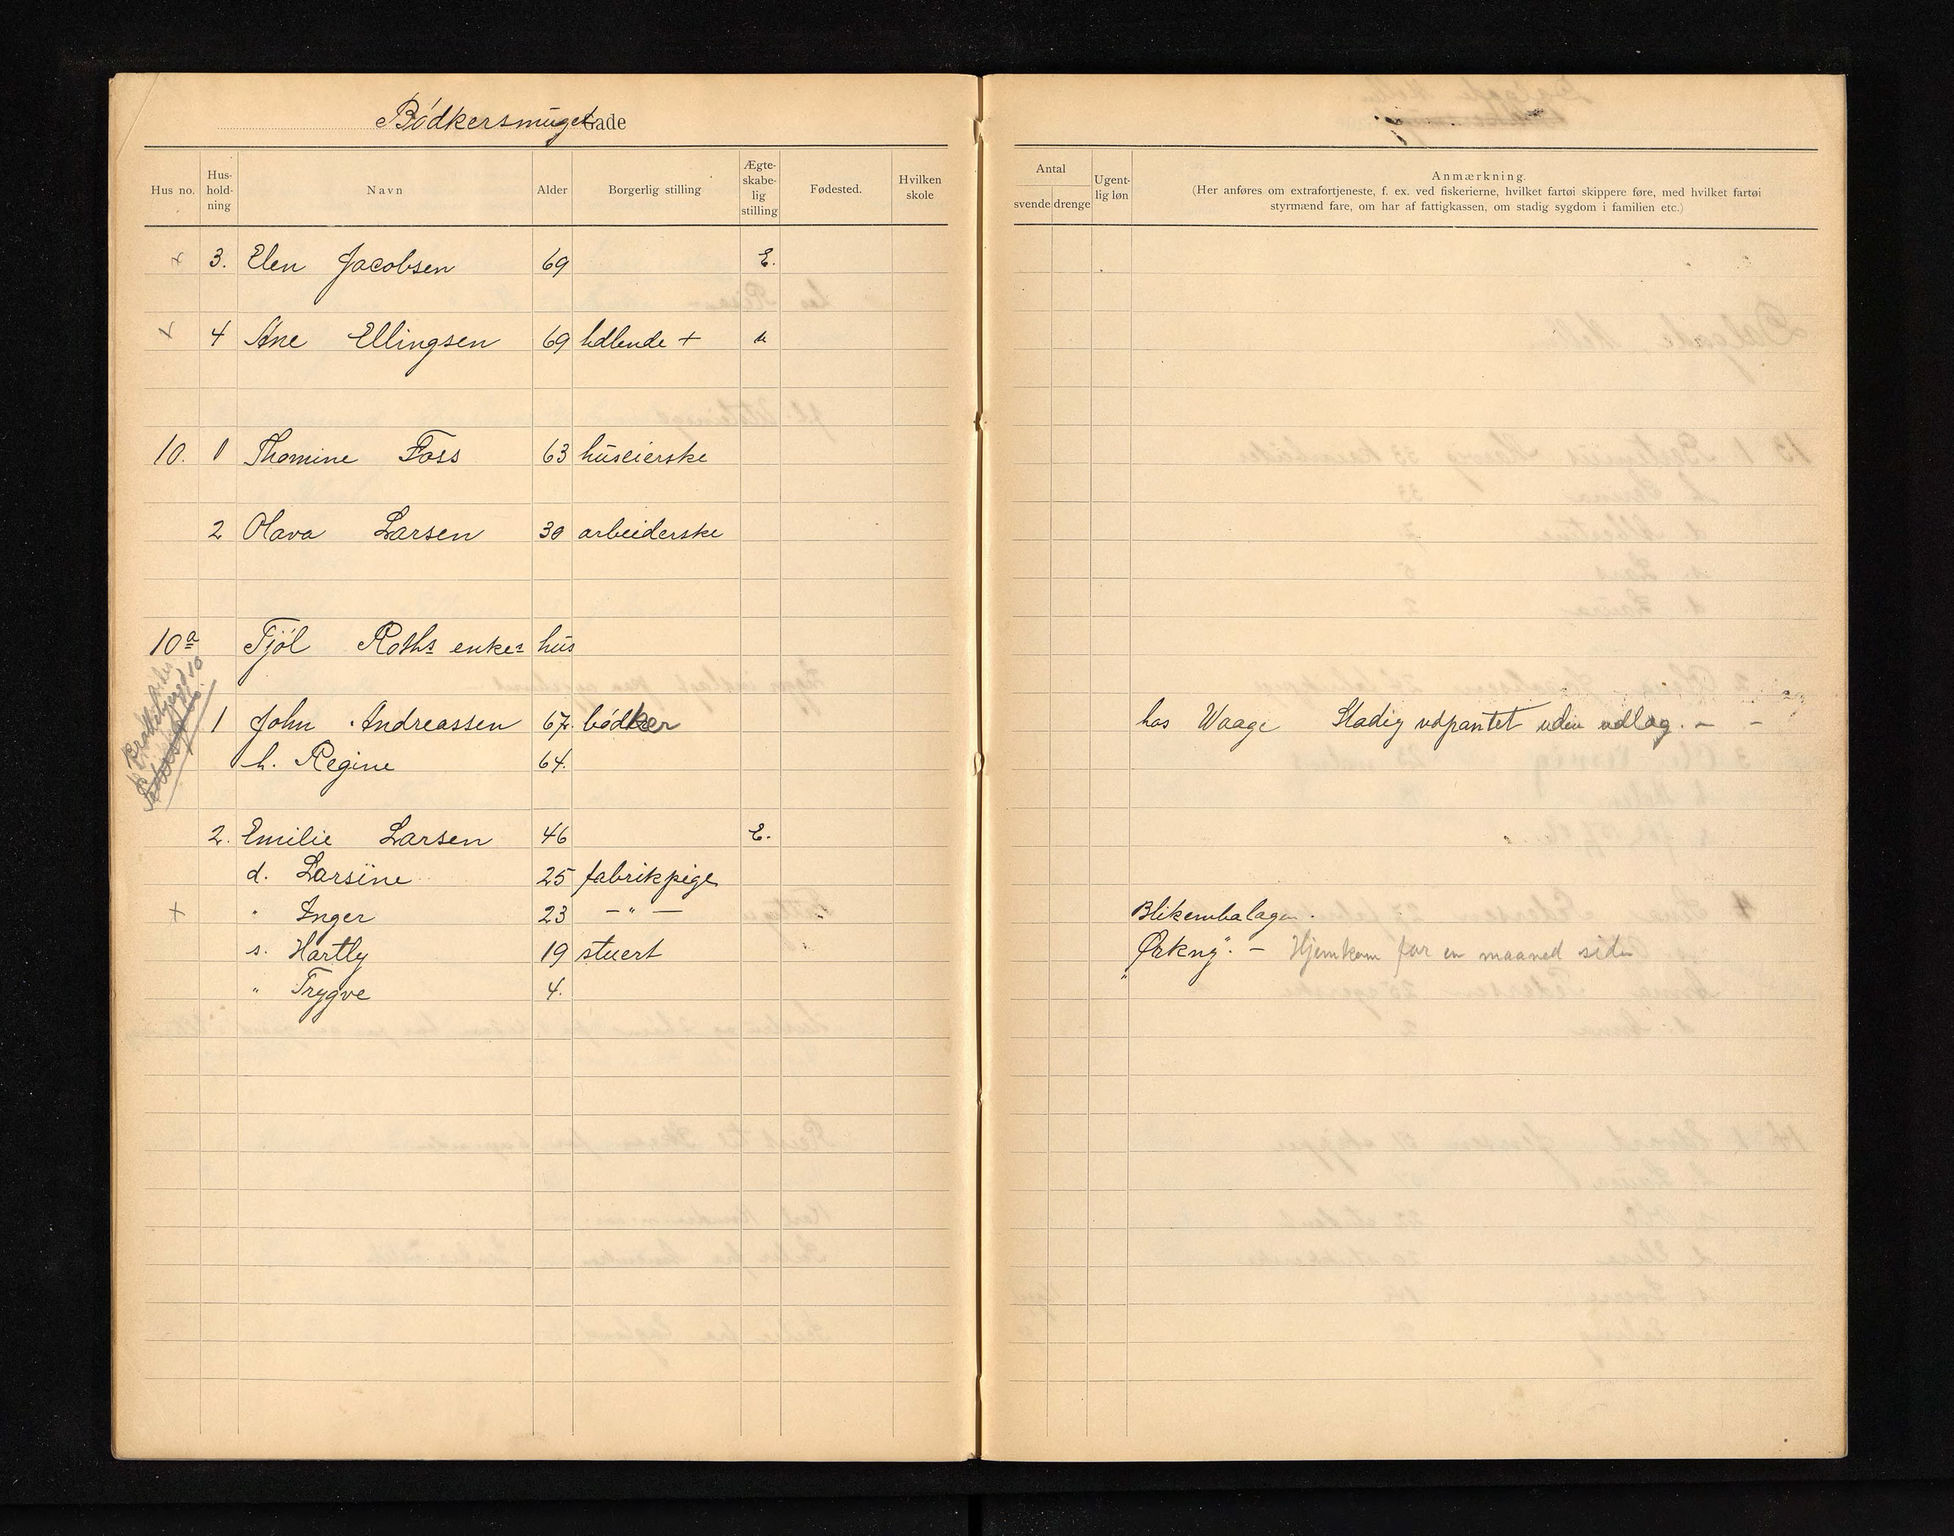 Bødkersmuget Gade
Hus no. Hus-hold-ning Navn Alder Borgerlig stilling Ægte-skabe-lig stilling Fødested. Hvilken skole
Antal svende drenge Ugent-lig løn Anmærkning.
(Her anføres om extrafortjeneste, f. ex. ved fiskerierne, hvilket fartøi skippere føre, med hvilket fartøi
styrmænd fare, om har af fattigkassen, om stadig sygdom i familien etc.)
x 3. Elen Jacobsen 69 E.
x 4 Ane Ellingsen 69 +
10. 1 Thomine Foss 63 huseierske
2 Olava Larsen 30 arbeiderske
10a Tjøl Roths enkes hus
1 John Andreassen 67. bødker hos Waage Stadig udpantet uden udlæg. – –
h. Regine 64.
2. Emilie Larsen 46 E.
d. Larsine 25 fabrikpige
+ " Inger 23 – " – Blikembalagen.
s. Hartly 19 stuert "Ørkny". – Hjemkom for en maaned siden
" Trygve 4.